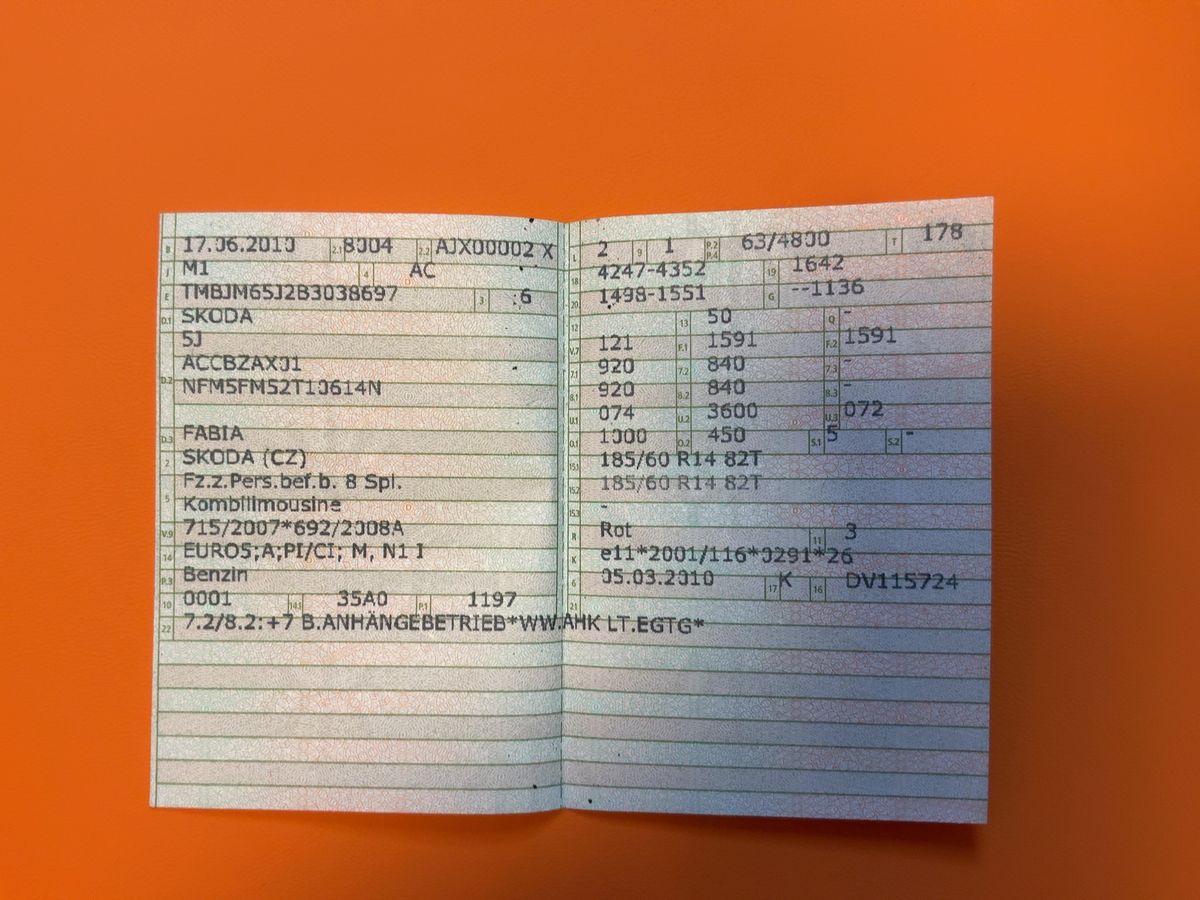 B 17.06.2010 2.1 8004 2.2 AJX00002 X
J M1 4 AC
E TMBJM65J2B3038697 3 :6
D.1 SKODA
5J
D.2 ACCBZAX01
NFM5FM52T10614N
D.3 FABIA
2 SKODA (CZ)
Fz.z.Pers.bef.b. 8 Spl.
5 Kombilimousine
V.9 715/2007*692/2008A
14 EURO5;A;PI/CI; M, N1 I
P.3 Benzin
10 0001 14.1 35A0 P.1 1197
22 7.2/8.2:+7 B.ANHÄNGEBETRIEB*WW.AHK LT.EGTG*
L 2 9 1 P.2 P.4 63/4800 T 178
18 4247-4352 19 1642
20 1498-1551 G --1136
12 13 50 Q -
V.7 121 F.1 1591 F.2 1591
7.1 920 7.2 840 7.3 -
8.1 920 8.2 840 8.3 -
U.1 074 U.2 3600 U.3 072
O.1 1000 O.2 450 S.1 5 S.2 -
15.1 185/60 R14 82T
15.2 185/60 R14 82T
15.3 -
R Rot 11 3
K e11*2001/116*0291*26
6 05.03.2010 17 K 16 DV115724
21